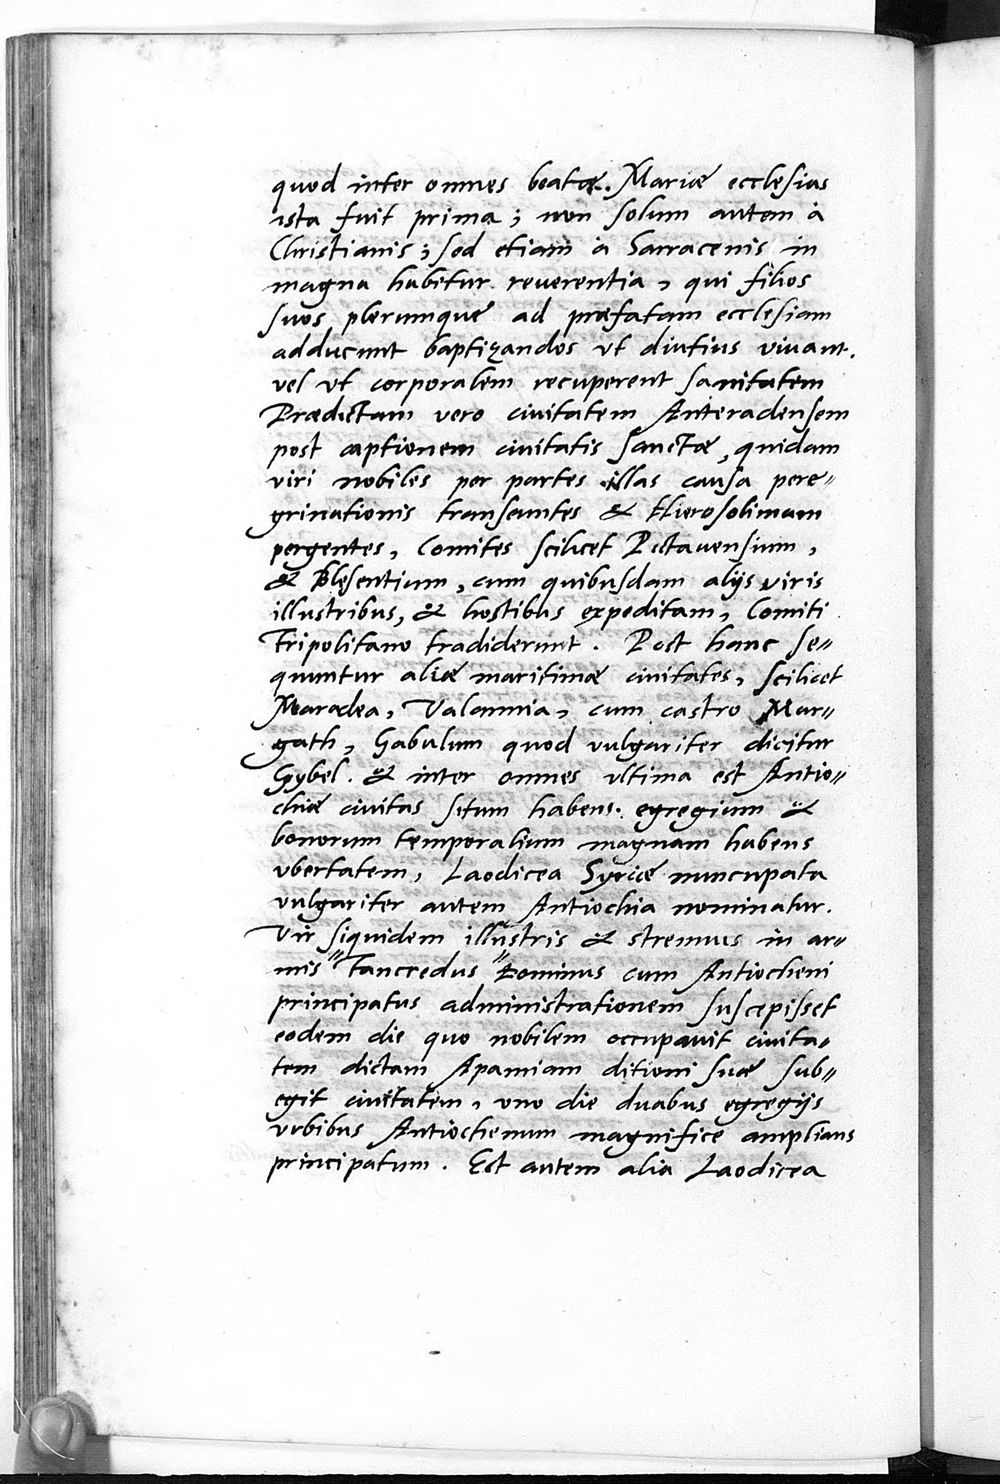 quod inter omnes beatæ. Mariæ ecclesias
ista fuit prima; non solum autem à
Christianis; sed etiam à Sarracenis in
magna habetur reuerentia, qui filios
suos plerumque ad præfatam ecclesiam
adducunt baptizandos vt diutius viuant.
vel vt corporalem recuperent sanitatem
Prædictam vero ciuitatem Anteradensem
post captionem ciuitatis Sanctæ, quidam
viri nobiles per partes illas causa pere"
grinationis transeuntes & Hierosolimam
pergentes, Comites scilicet Pictauensium,
& Blesentium, cum quibusdam alijs viris
illustribus, & hostibus expeditam, Comiti
Tripolitano tradiderunt. Post hanc se"
quuntur aliæ maritimæ ciuitates, scilicet
Maradea, Valannia, cum castro Mar"
gath, Gabulum quod vulgariter dicitur
Gybel. & inter omnes vltima est Antio"
chiæ ciuitas situm habens. egregium &
bonorum temporalium magnam habens
vbertatem, Laodicea Syriæ nuncupata
vulgariter autem Antiochia nominatur.
Vir siquidem illustris & strenuus in ar"
mis "Tancredus" Dominus cum Antiocheni
principatus administrationem suscepisset
eodem die quo nobilem occupauit ciuita"
tem dictam Apamiam ditioni suæ sub"
egit ciuitatem, vno die duabus egregijs
vrbibus Antiochenum magnifice amplians
principatum. Est autem alia Laodicea